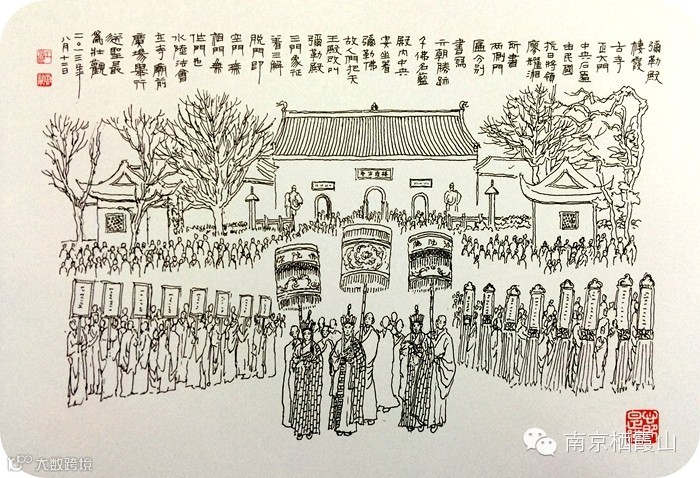 彌勒殿
棲霞
古寺
正大門
中央石匾
由民國
抗日將領
廖耀湘
所書
兩側門
匾分別
書寫
六朝勝跡
千佛名藍
殿內中央
安坐着
彌勒佛
故人們把天
王殿改叫
彌勒殿
三門象征
着三解
脫門即
空門 無
相門 無
作門也
水陸法會
在寺廟前
廣場舉行
送聖最
為壯觀
二〇一三年
八月十二日
大数跨境
南京栖霞山